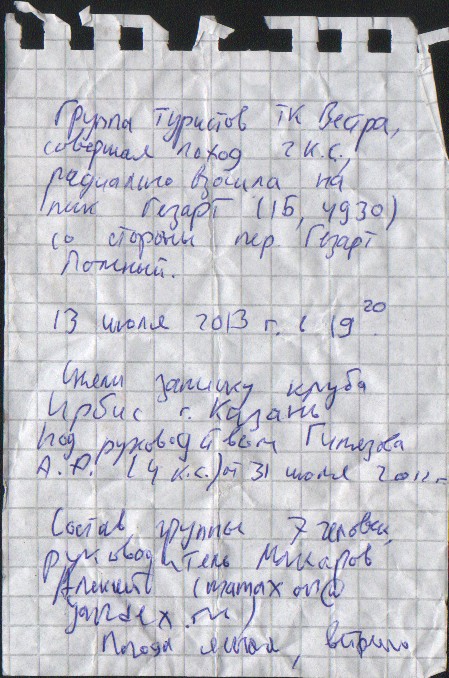 Группа туристов ТК Вестра,
совершая поход 2 к.с.,
радиально взошла на
пик Гезарт (1Б, 4930)
со стороны пер. Гезарт
Ложный.
13 июля 2013 г. в 19 20.
Сняли записку клуба
Ирбис г. Казань
под руководством Гилязова
А.Р. (4 к.с.) от 31 июля г.
Состав группы 7 человек,
руководитель Макаров
Алексей
yandex.ru)
Погода ясная, ветрено